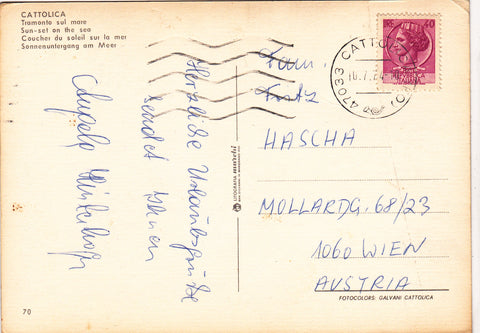 CATTOLICA
Tramonto sul mare
Sun-set on the sea
Coucher du soleil sur la mer
Sonnenuntergang am Meer
Herzliche Urlaubsgrüße
sendet Ihnen
Angela
40
47033 CATTOLICA (FO)
Fam.
Fritz
HASCHA
MOLLARDG. 68/23
1060 WIEN
AUSTRIA
LITOGRAFIA
FOTOCOLORS: GALVANI CATTOLICA
70